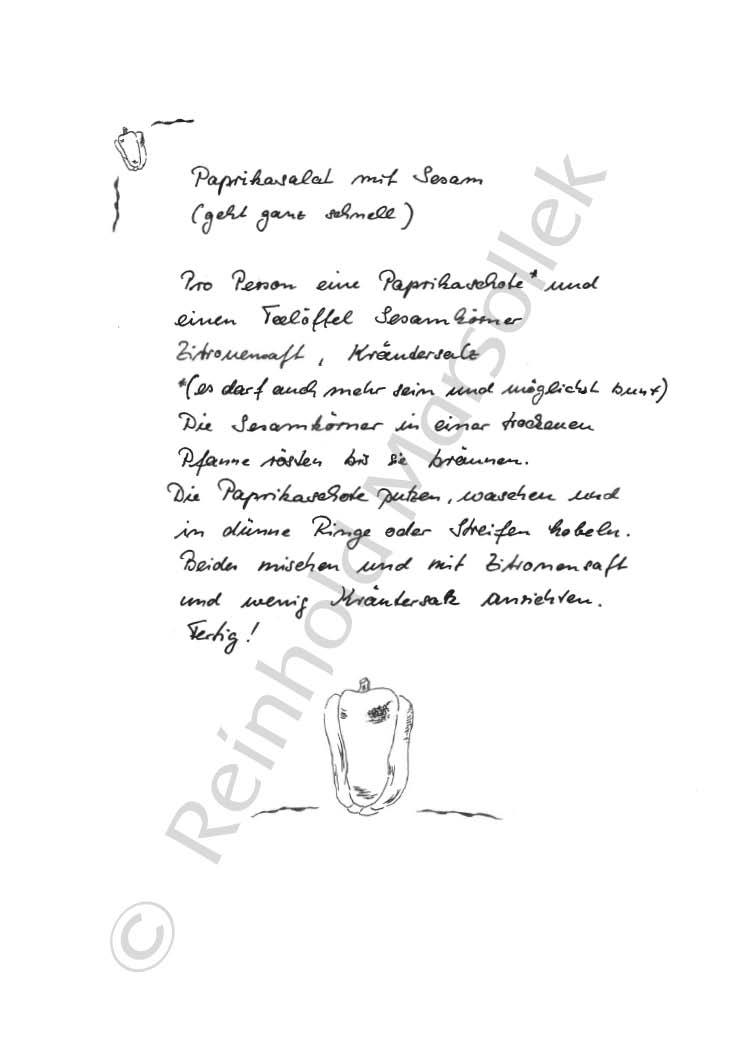 Paprikasalat mit Sesam
(geht ganz schnell)
Pro Person eine Paprikaschote* und
einen Teelöffel Sesamkörner
Zitronensaft, Kräutersalz
*(es darf auch mehr sein und möglichst bunt)
Die Sesamkörner in einer trockenen
Pfanne rösten bis sie bräunen.
Die Paprikaschote putzen, waschen und
in dünne Ringe oder Streifen hobeln.
Beides mischen und mit Zitronensaft
und wenig Kräutersalz anrichten.
Fertig!
© Reinhold Marsollek